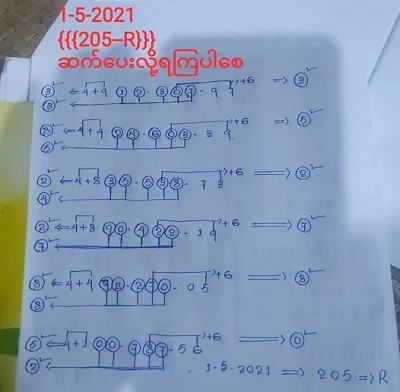 1-5-2021
{{{205–R}}}
ဆက်ပေးလို့ရကြပါစေ
③ ⇐ 4+9 ①②-③⓪⑦-9 7 +6 ⇒ ③
③
⑧ ⇐ 4+4 ②④-⑥⓪③-3 9 +6 ⇒ ⑤
⑤
② ⇐ 4+8 ③⑤-⑤③⑧-7 3 +6 ⇒ ②
④
② ⇐ 4+3 ⑨⓪-④②②-1 9 +6 ⇒ ⑦
⑦
⑧ ⇐ 4+4 -0 5 +6 ⇒ ⑧
⑧
⑤ ⇐ 4+1 ⓪⓪-⑦⑧⑦-5 6 +6 ⇒ ⓪
②
1-5-2021 ⇒ 205 ⇒ R